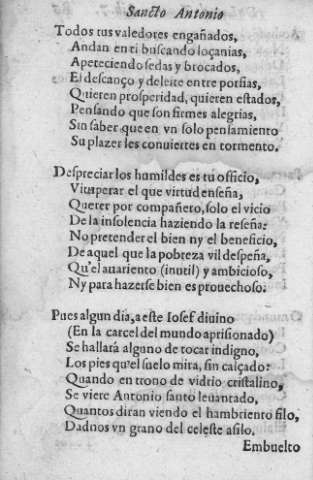 Sancto Antonio
Todos tus valedores engañados,
Andan en ti buscando loçanias,
Apeteciendo sedas y brocados,
El descanço y deleite entre porfias,
Quieren prosperidad, quieren estados,
Pensando que son firmes alegrias,
Sin saber que en vn solo pensamiento
Su plazer les conuierten en tormento.
Despreciar los humildes es tu officio,
Vituperar el que virtud enseña,
Querer por compañero, solo el vicio
De la insolencia haziendo la reseña:
No pretender el bien ny el beneficio,
De aquel que la pobreza vil despeña,
Qu'el auariento (inutil) y ambicioso,
Ny para hazerse bien es prouechoso.
Pues algun dia, a este Iosef diuino
(En la carcel del mundo aprisionado)
Se hallarà alguno de tocar indigno,
Los pies qu'el suelo mira, sin calçado:
Quando en trono de vidrio cristalino,
Se viere Antonio santo leuantado,
Quantos diran viendo el hambriento silo,
Dadnos vn grano del celeste asilo.
Embuelto